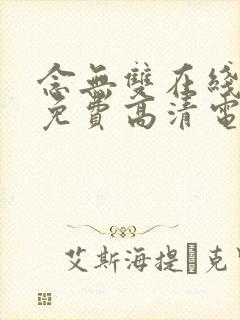 念無雙在綫
免費高清電
艾斯海提·克